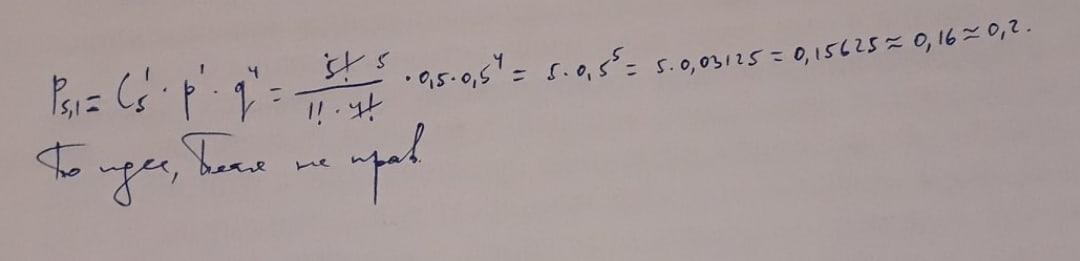 P₅,₁ = C₅¹ · p¹ · q⁴ = 5! 5 / 1! · 4! · 0,5 · 0,5⁴ = 5 · 0,5⁵ = 5 · 0,03125 = 0,15625 ≈ 0,16 ≈ 0,2.
По идее, Петя не прав.